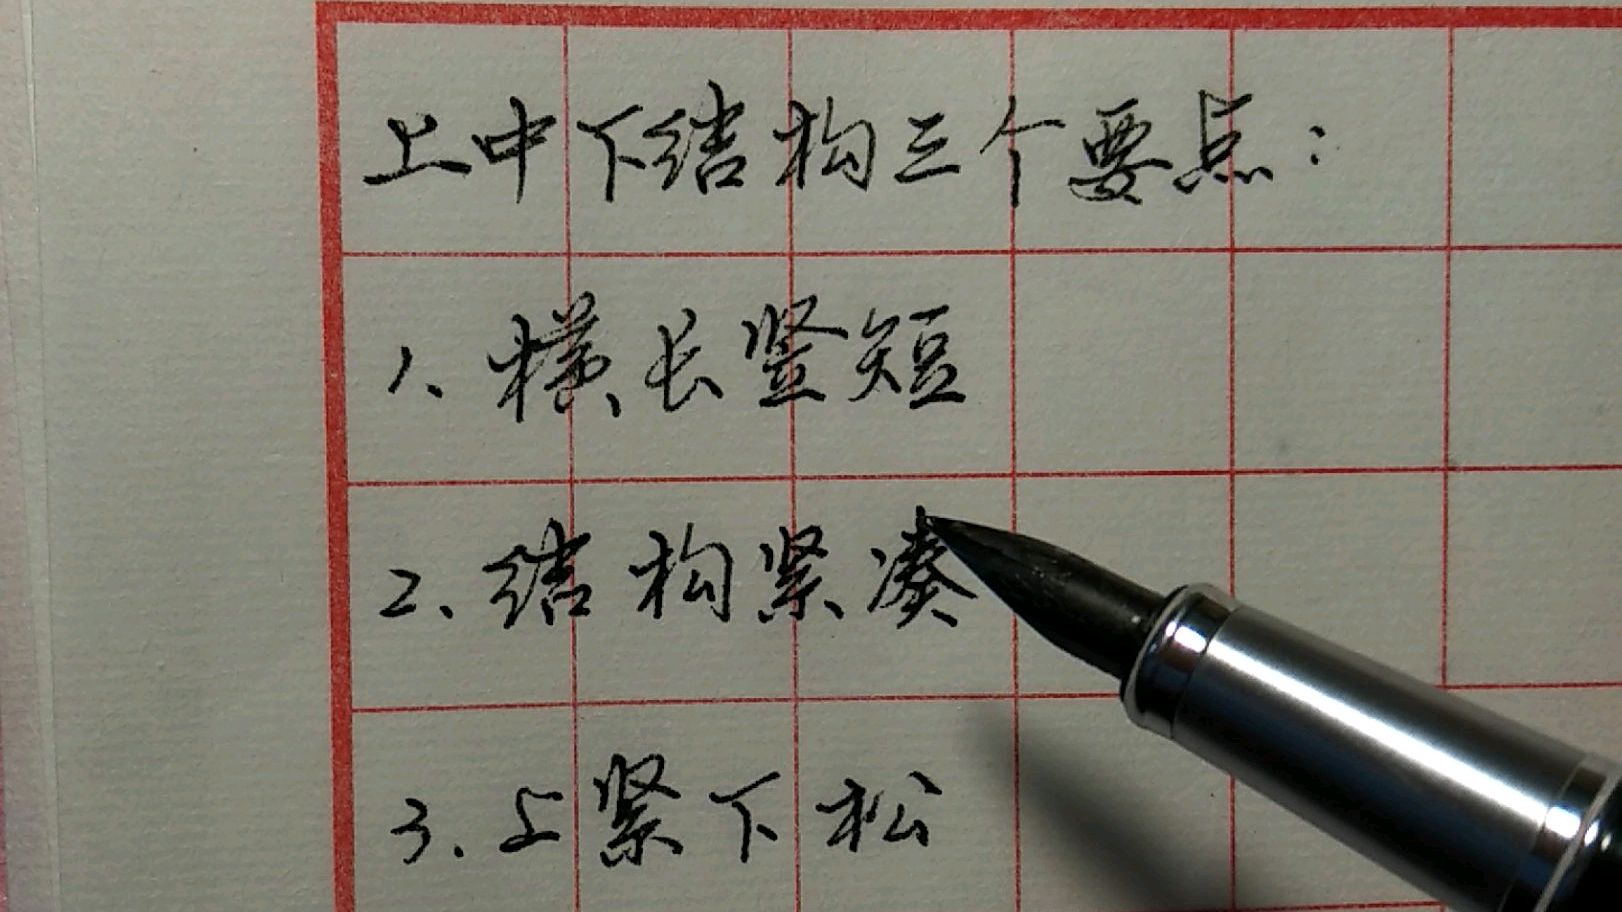 上中下结构三个要点：
1、横长竖短
2、结构紧凑
3、上紧下松